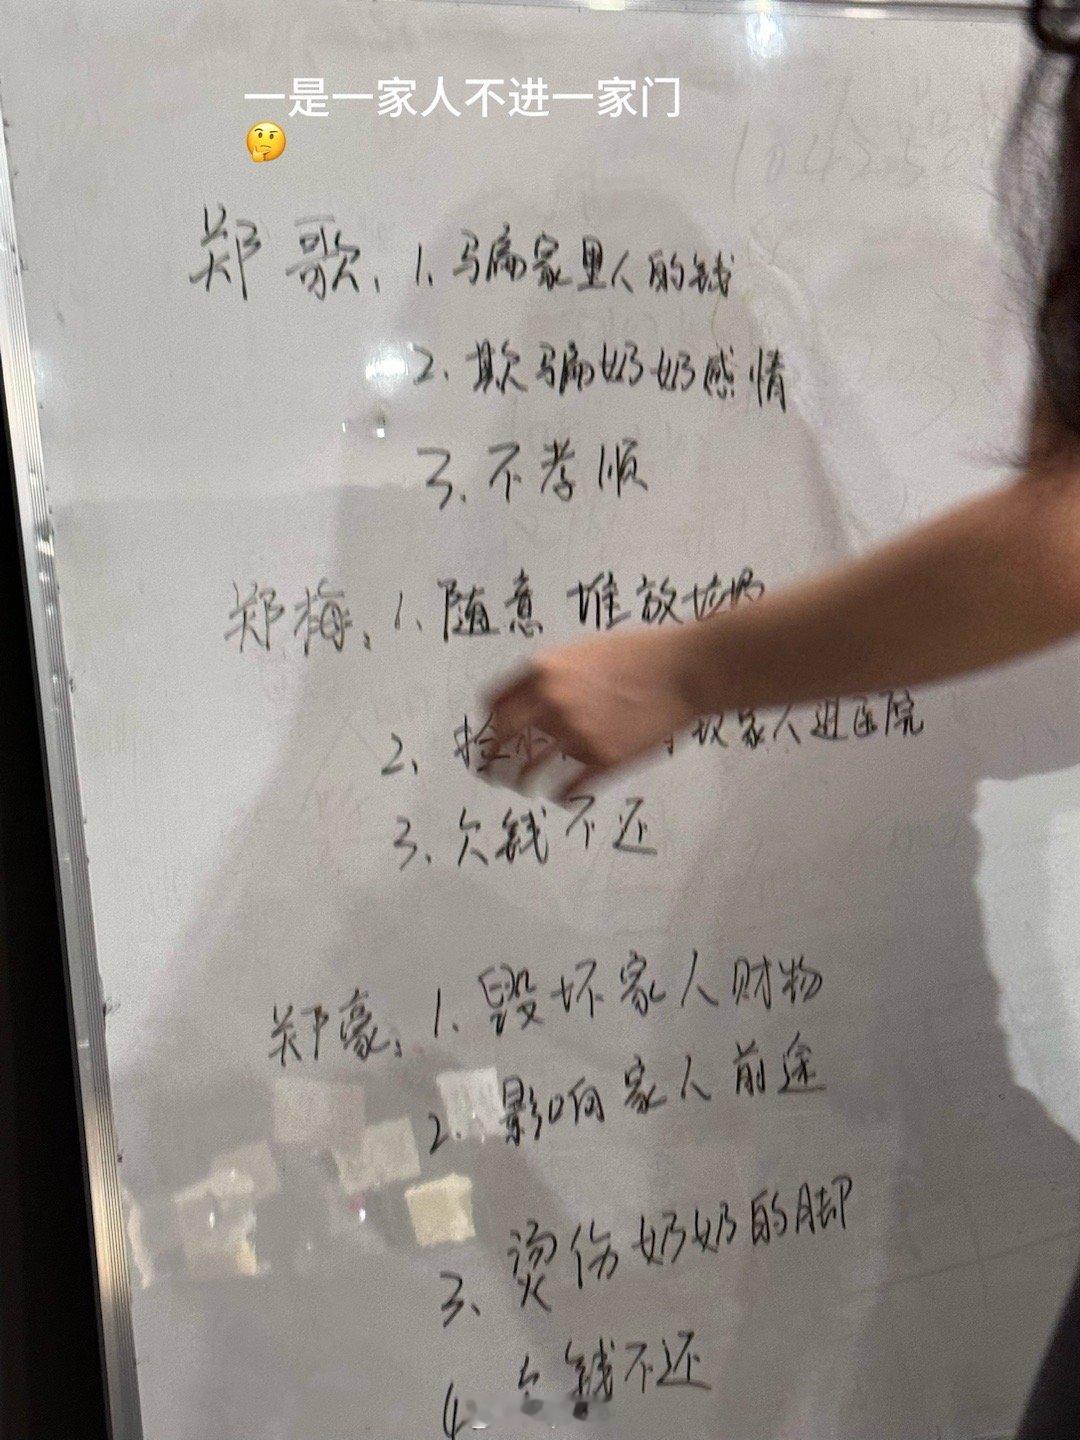 一是一家人不进一家门
🤔
郑歌：1、骗家里人的钱
2、欺骗奶奶感情
3、不孝顺
郑梅：1、随意堆放垃圾
2、捡 家人进医院
3、欠钱不还
郑豪：1、毁坏家人财物
2、影响家人前途
3、烫伤奶奶的脚
4、欠钱不还